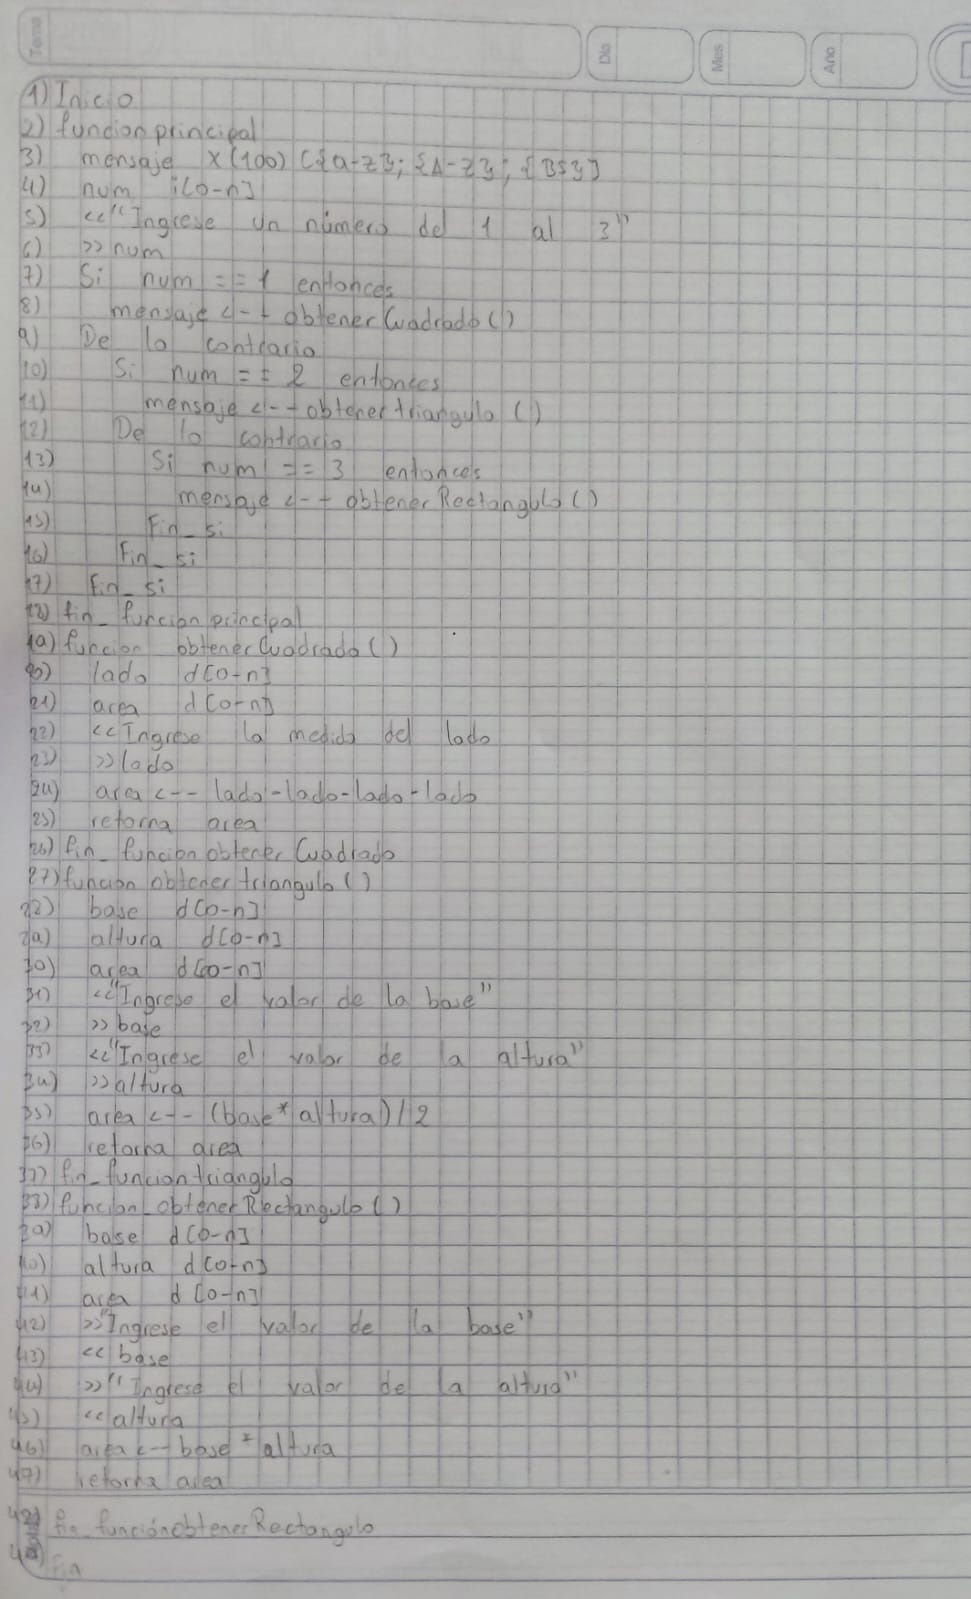 Tema
Dia
Mes
Ano
1) Inicio
2) funcion principal
3) mensaje X(100) [{a-z}; {A-Z}; {B$}]
4) num i[0-n]
5) <<"Ingrese un número del 1 al 3"
6) >> num
7) Si num == 1 entonces
8) mensaje <-- obtenerCuadrado()
9) De lo contrario
10) Si num == 2 entonces
11) mensaje <-- obtenertriangulo ()
12) De lo contrario
13) Si num == 3 entonces
14) mensaje <-- obtenerRectangulo ()
15) Fin_si
16) Fin_si
17) Fin_si
18) fin_ funcion principal
19) funcion obtenerCuadrado ()
20) lado d[0-n]
21) area d[0-n]
22) <<Ingrese la medida del lado
23) >>lado
24) area <-- lado-lado-lado-lado
25) retorna area
26) fin_ funcion obtenerCuadrado
27) funcion obtenertriangulo ()
28) base d[0-n]
29) altura d[0-n]
30) area d[0-n]
31) <<"Ingrese el valor de la base"
32) >> base
33) <<"Ingrese el valor de la altura"
34) >>altura
35) area <-- (base* altura)/2
36) retorna area
37) fin_funcion triangulo
38) funcion obtenerRectangulo ()
39) base d[0-n]
40) altura d[0-n]
41) area d [0-n]
42) >>"Ingrese el valor de la base"
43) << base
44) >>"Ingrese el valor de la altura"
45) <<altura
46) area <-- base * altura
47) retorna area
48) fin_ función obtenerRectangulo
49) Fin